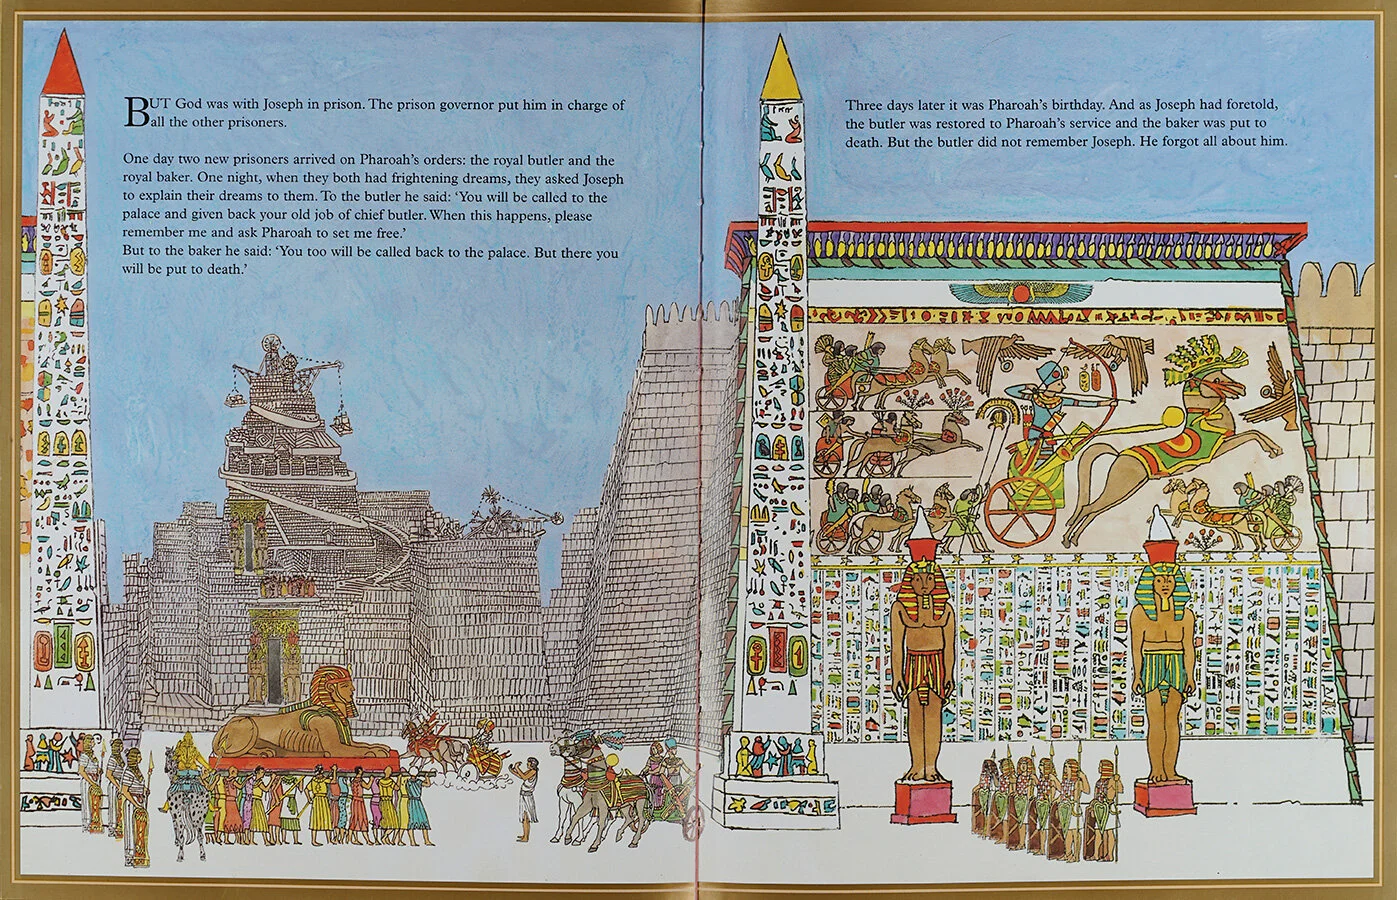 BUT God was with Joseph in prison. The prison governor put him in charge of
all the other prisoners.
One day two new prisoners arrived on Pharoah's orders: the royal butler and the
royal baker. One night, when they both had frightening dreams, they asked Joseph
to explain their dreams to them. To the butler he said: ‘You will be called to the
palace and given back your old job of chief butler. When this happens, please
remember me and ask Pharoah to set me free.’
But to the baker he said: ‘You too will be called back to the palace. But there you
will be put to death.’
Three days later it was Pharoah's birthday. And as Joseph had foretold,
the butler was restored to Pharoah's service and the baker was put to
death. But the butler did not remember Joseph. He forgot all about him.